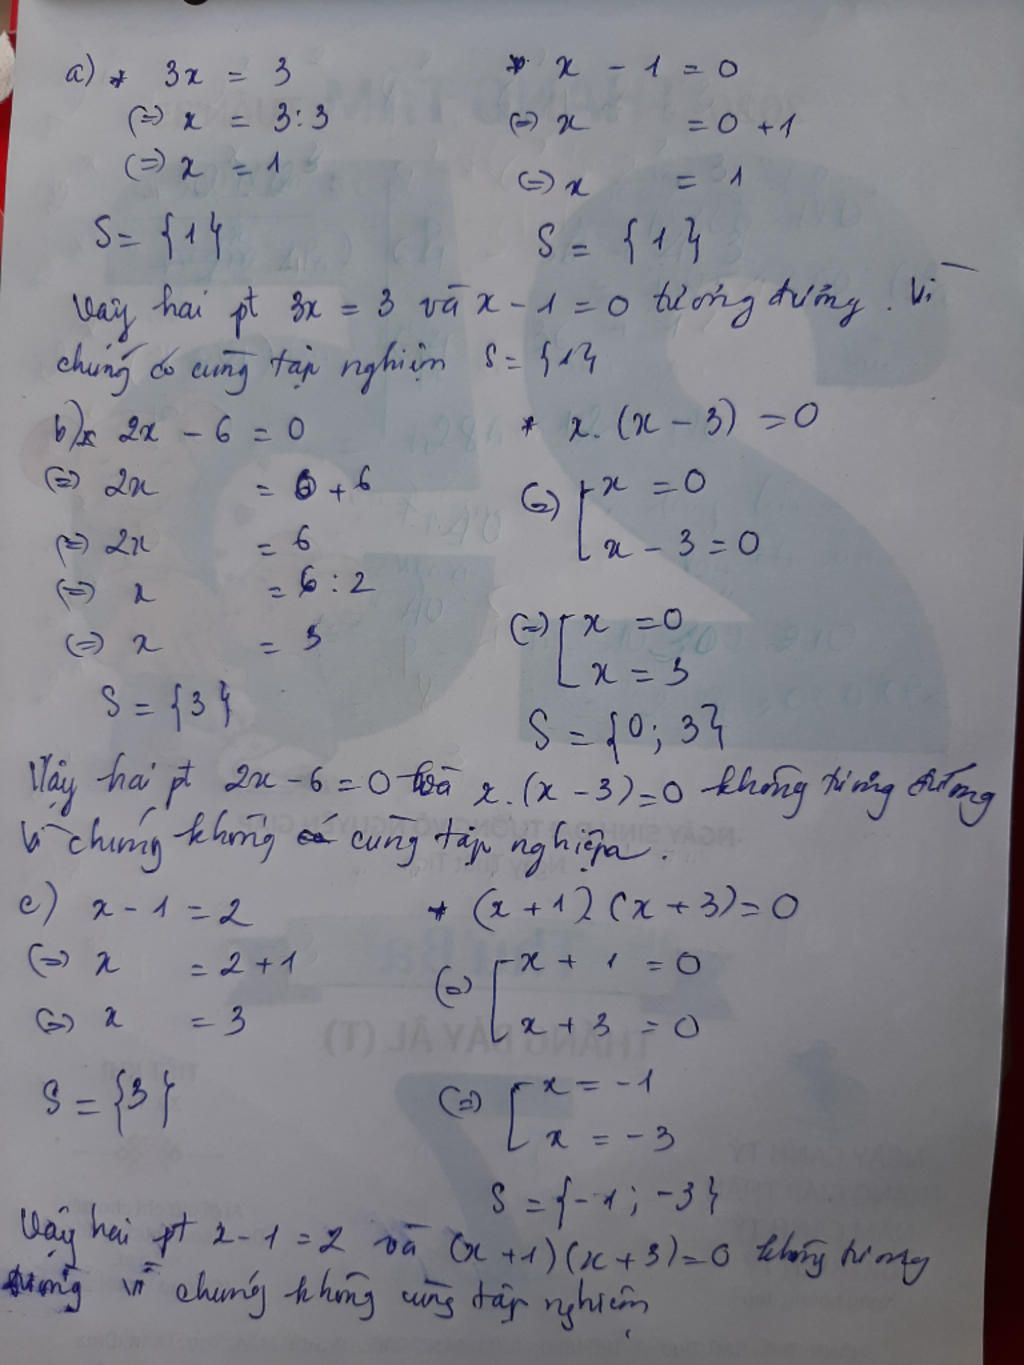 a) * 3x = 3
(=) x = 3:3
(=) x = 1
S = {1}
* x - 1 = 0
(=) x = 0 + 1
(=) x = 1
S = {1}
Vậy hai pt 3x = 3 và x - 1 = 0 tương đương. Vì
chúng có cùng tập nghiệm S = {1}
b) * 2x - 6 = 0
(=) 2x = 0 + 6
(=) 2x = 6
(=) x = 6 : 2
(=) x = 3
S = {3}
* x. (x - 3) = 0
(=) [ x = 0
x - 3 = 0
(=) [ x = 0
x = 3
S = {0; 3}
Vậy hai pt 2x - 6 = 0 và x. (x - 3) = 0 không tương đương
vì chúng không cùng tập nghiệm.
c) x - 1 = 2
(=) x = 2 + 1
(=) x = 3
S = {3}
* (x + 1) (x + 3) = 0
(=) [ x + 1 = 0
x + 3 = 0
(=) [ x = -1
x = -3
S = {-1; -3}
Vậy hai pt x - 1 = 2 và (x + 1) (x + 3) = 0 không tương
đương vì chúng không cùng tập nghiệm